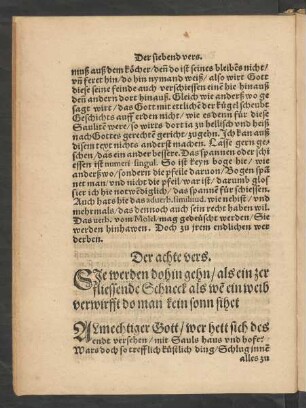 Der siebend vers.
muß auß dem köcher/ deñ do ist seines bleibẽs nicht/
vñ feret hin/ do hin nymand weiß/ also wirt Gott
diese seine feinde auch verschiessen eine hie hinauß
den andern dort hinauß. Gleich wie anderß wo ge
sagt wirt/ das Gott mit etlichẽ der kugel scheubt
Geschichts auff erden nicht/ wie es denn für diese
Saulitẽ were/ so wirts dort ia zu hellisch vnd heiß
nach Gottes gerechtẽ gericht/ zugehn. Ich kan auß
disem teyt nichts anderst machen. Lasse gern ge-
schehen/ das ein ander bessere. Das spannen oder schi
essen ist numeri singul. So ist keyn boge hie/ wie
anderßwo/ sondern die pfeile daruon/ Bogen spã
net man/ vnd nicht die pfeil/ war ist/ darumb glos
sier ich hie notwẽdiglich/ das spannẽ für schiessen.
Auch hats hie das aduerb. similitud. wie nehist/ vnd
mehrmals/ das dennoch auch sein recht haben wil.
Das verb. vom Molel mag gedeutscht werden/ Sie
werden hinhawen. Doch zu jrem endlichen ver
derben.
Der achte vers.
SIe werden dohin gehn/ als ein zer
fliessende Schneck als wẽ ein weib
verwirfft do man kein sonn sihet
ALmechtiger Gott/ wer hett sich des
endt versehen/ mit Sauls haus vnd hofe?
Wars doch so trefflich köstlich ding/ Schlug jmẽ
alles zu